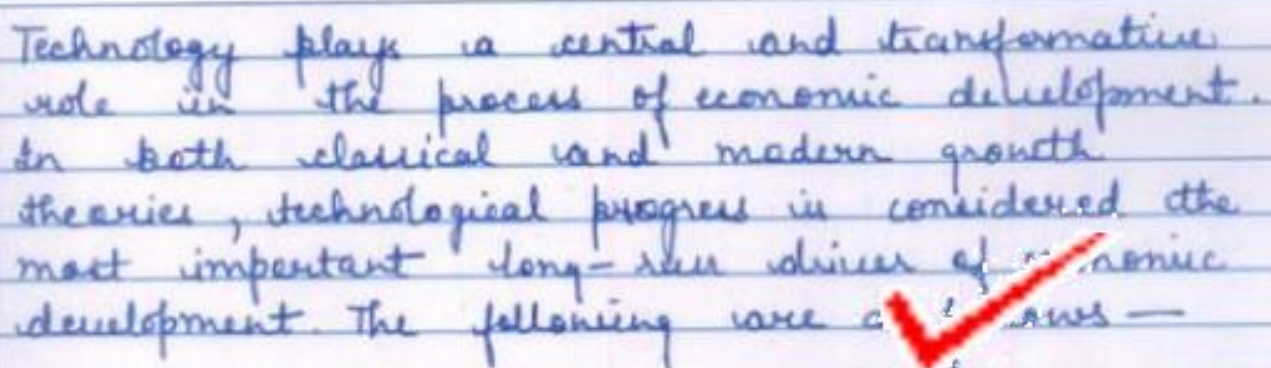 Technology plays a central and transformative
role in the process of economic development.
In both classical and modern growth
theories, technological progress is considered the
most important long-run driver of
development. The following are